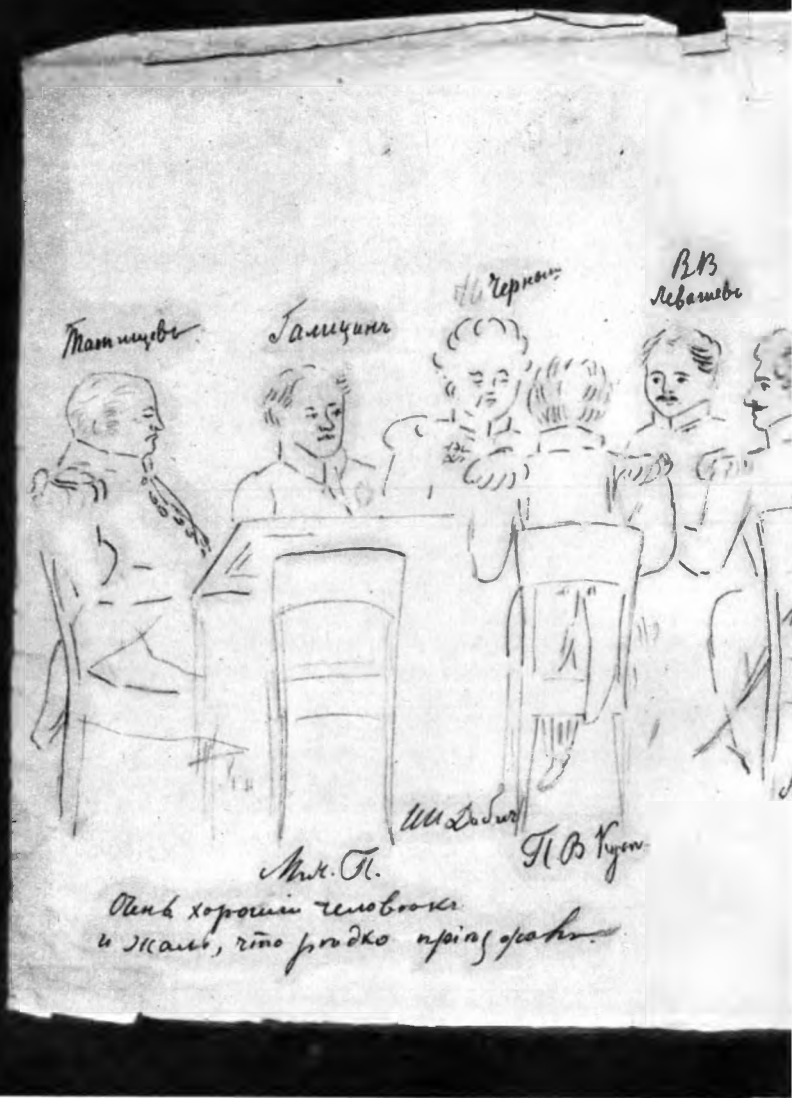 Татищевъ
Галицинъ
Черныш
ВВ
Левашевъ
ИИ Дибич
П В Кут
Мих. П.
Очень хорошiй человѣкъ
и жаль, что рѣдко прiѣзжалъ